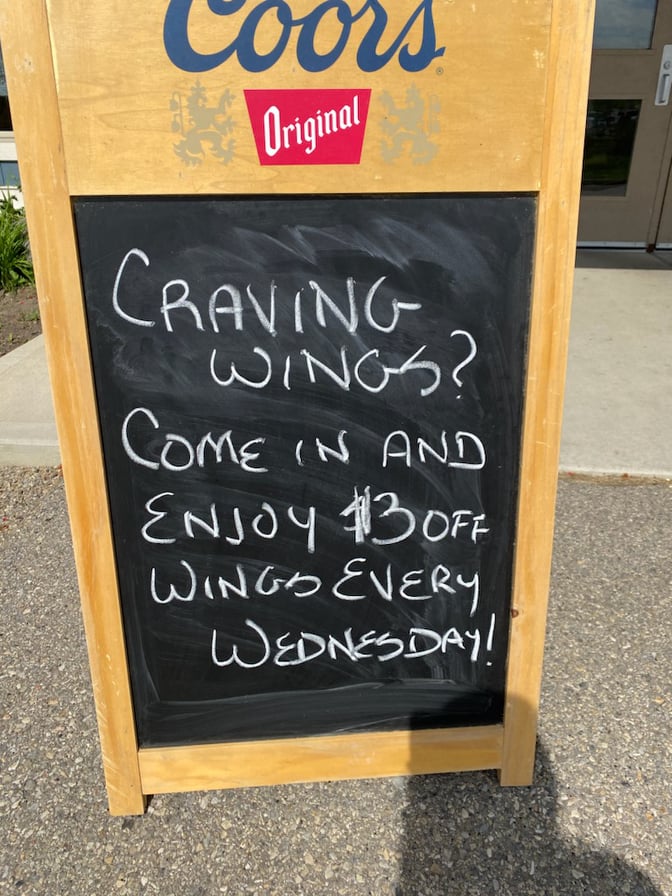 Coors®
Original
CRAVING
WINGS?
COME IN AND
ENJOY $3 OFF
WINGS EVERY
WEDNESDAY!